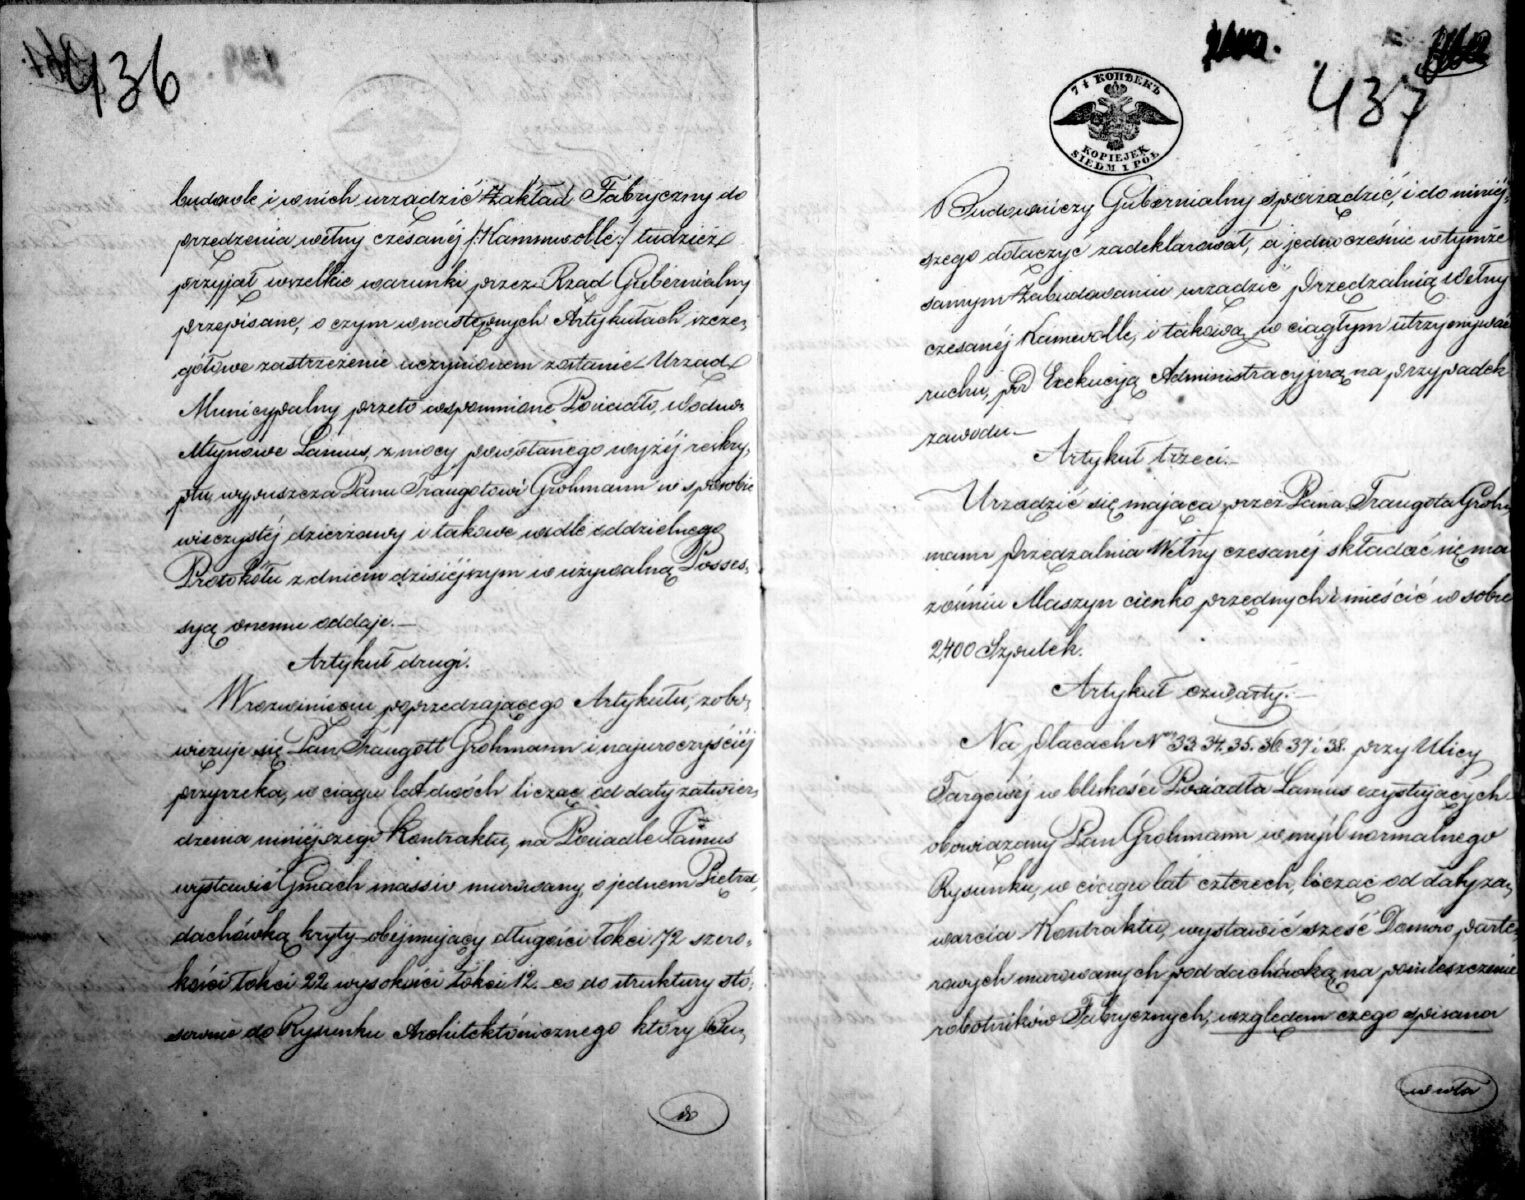 436
budowle i w nich urządzić Zakład Fabryczny do
przędzenia wełny czésanéj /:Kammwolle:/ tudzież
przyjął wszelkie warunki przez Rząd Gubernialny
przepisane, o czym w następnych Artykułach szcze,
gółowe zastrzeżenie uczynionem zostanie Urząd
Municypalny przeto wspomnione Posiadło, Wodno
Młynowe Lamus, z mocy powołanego wyżéj reskry,
ptu wypuszcza Panu Traugotowi Grohmann w sposobie
wieczystéj dzierżawy i takowe wedle oddzielnego
Protokółu z dniem dzisiéjszym w używalną Posses,
syą onemu oddaje.—
Artykuł drugi.
W rozwinięciu poprzedzającego Artykułu, zobo,
wiązuje się Pan Traugott Grohmann i najuroczyściéj
przyrzeka, w ciągu lat dwóch licząc od daty zatwier,
dzenia niniejszego Kontraktu, na Posiadle Lamus
wystawić Gmach massiv murowany, o jednem Piętrze,
dachówką kryty obejmujący długości łokci 72 szero,
kości łokci 22 wysokości łokci 12. co do struktury sto,
sownie do Rysunku Architektonicznego który Bu,
437
7½ КОПѢЕКЪ
KOPIEJEK
SIEDM I PÓŁ
Budowniczy Gubernialny sporządzić, i do niniéj,
szego dołączyć zadeklarował, a jednocześnie w tymże
samym Zabudowaniu urządzić Przędzalnią Wełny
czesanéj Kamewolle, i takową w ciągłym utrzymywać
ruchu, pod Exekucyą Administracyjną na przypadek
zawodu.—
Artykuł trzeci.—
Urządzić się mająca przez Pana Traugota Groh,
mann Przędzalnia Wełny czesanéj składać się ma
z ośmiu Maszyn cienko przędnych i mieścić w sobie
2,400 Szpulek.
Artykuł czwarty.—
Na placach Nrm 33. 34. 35. 36. 37 i 38. przy Ulicy
Targowéj w bliskości Posiadła Lamus exystujących
obowiązany Pan Grohmann w myśl normalnego
Rysunku, w ciągu lat czterech, licząc od daty za,
warcia Kontraktu, wystawić sześć Domów parte,
rowych murowanych pod dachówką na pomieszczenie
robotników Fabrycznych, względem czego spisana